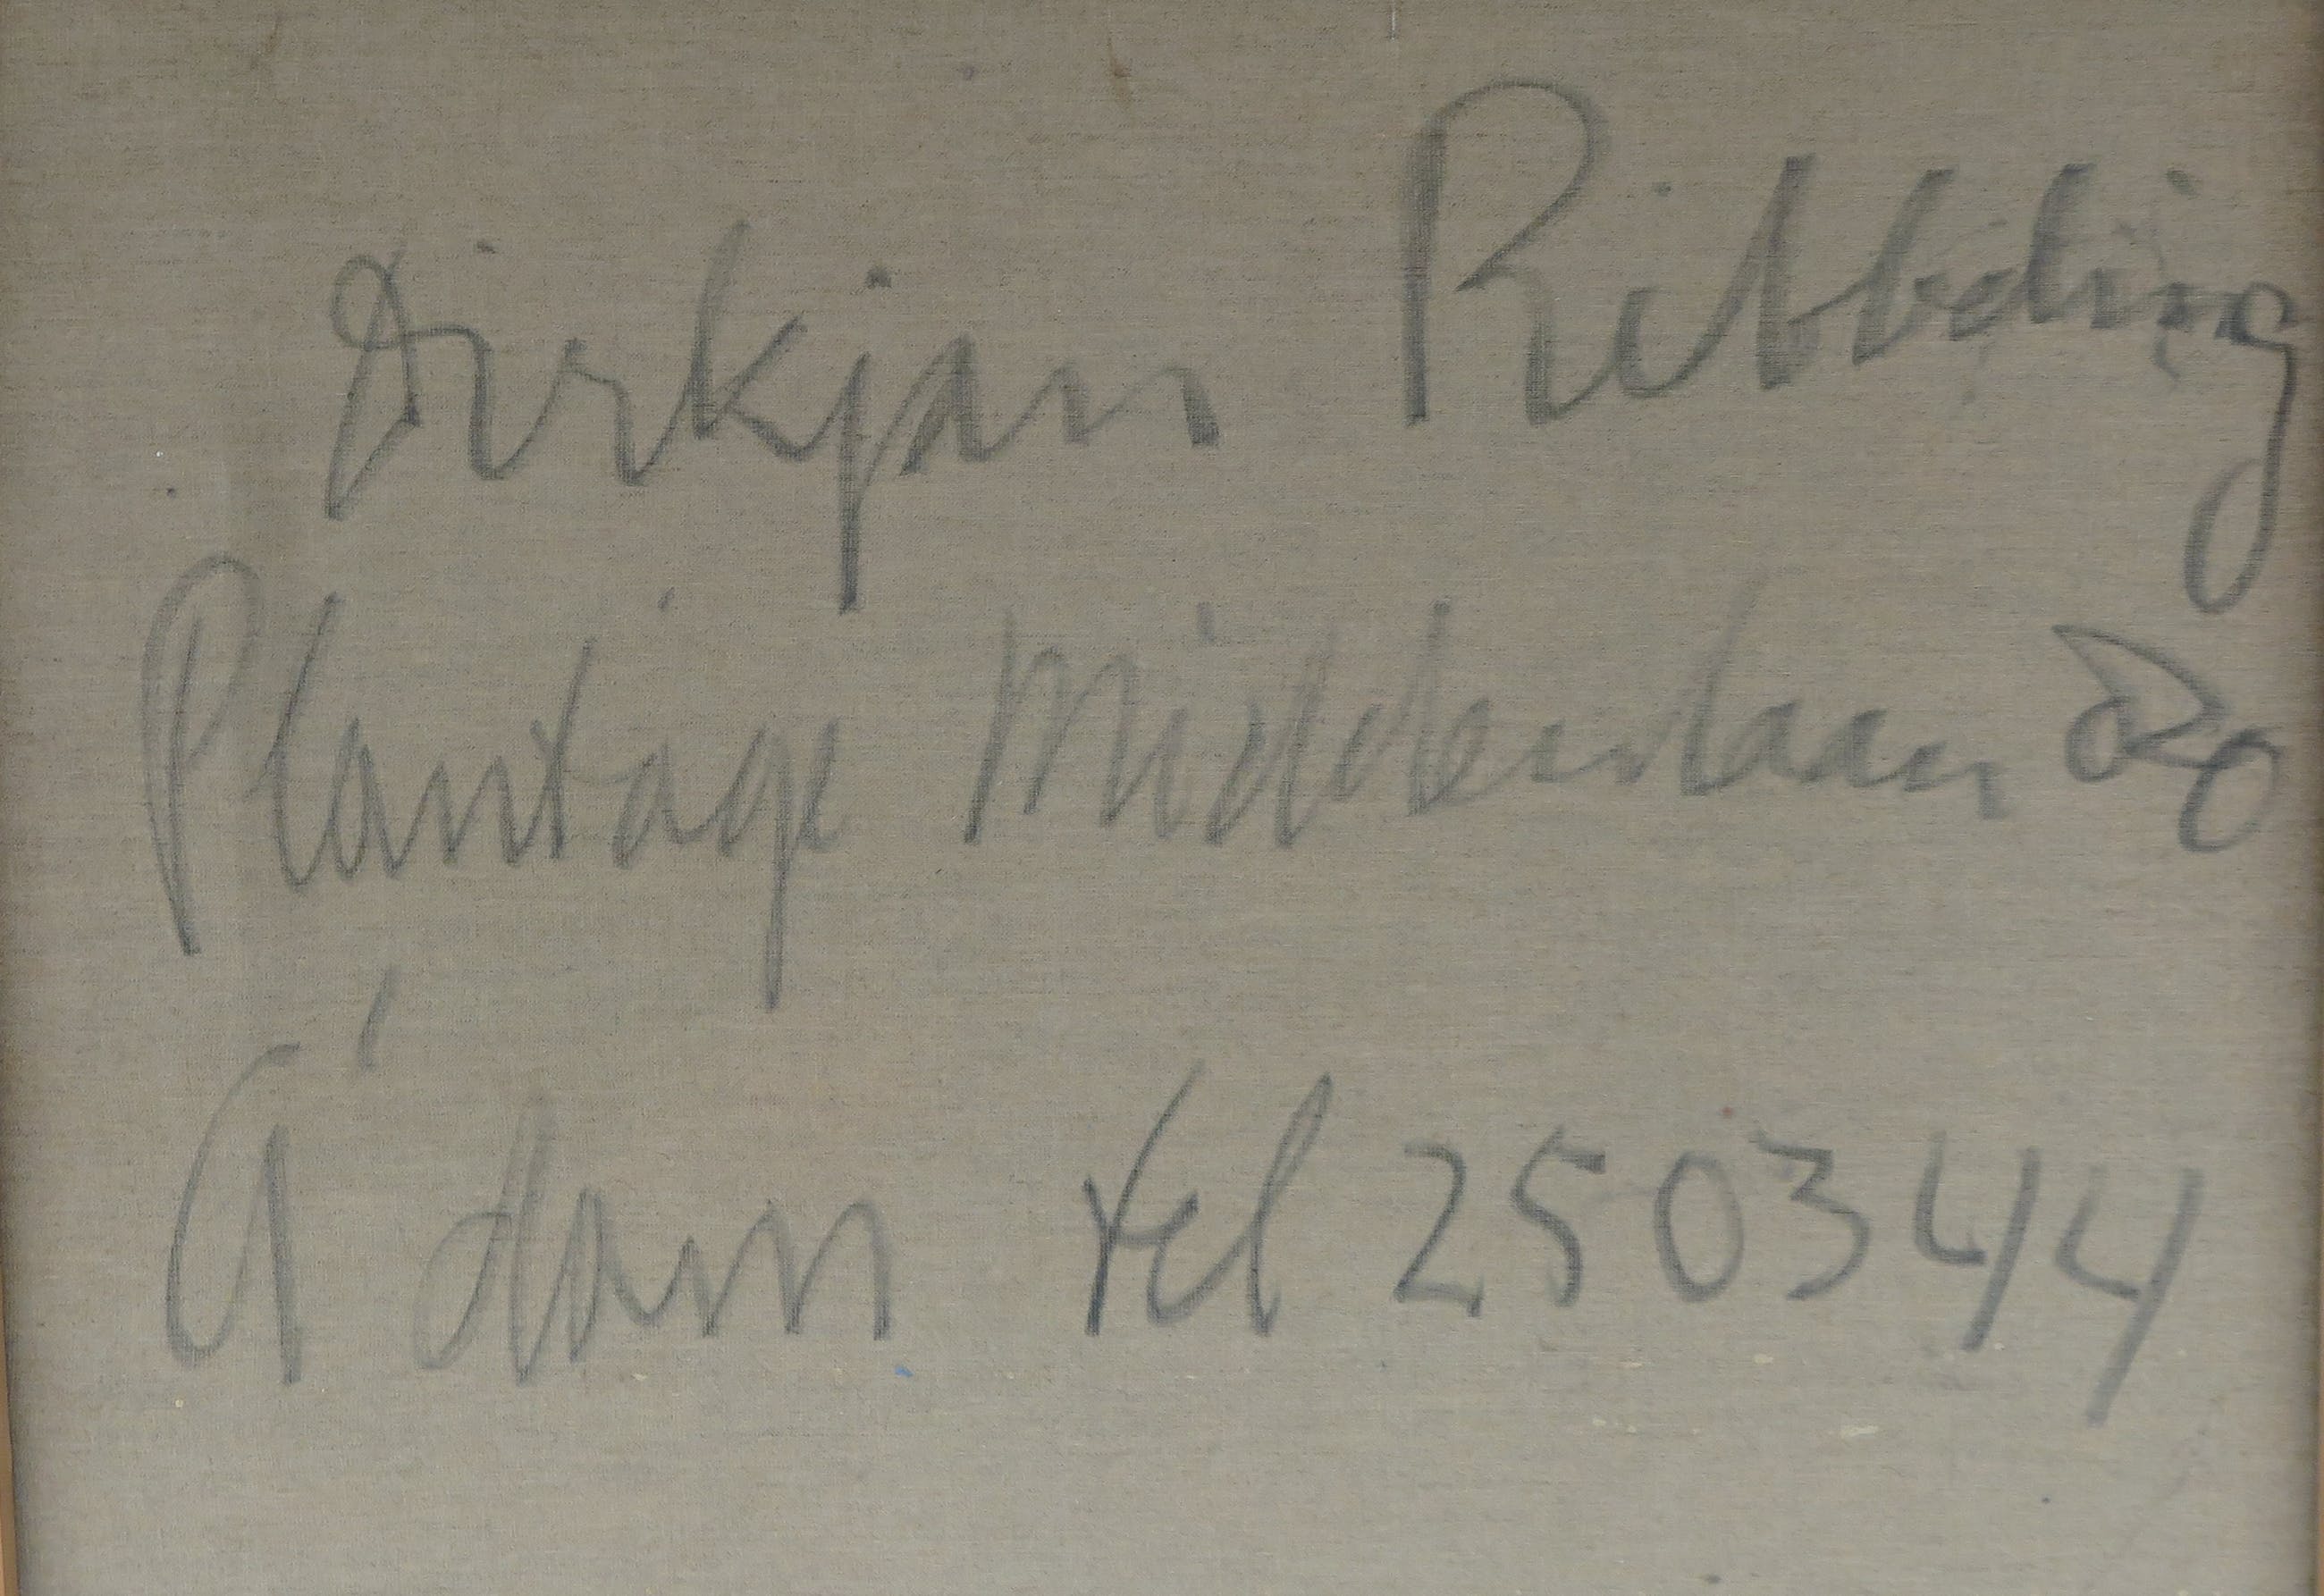 Dirkjan Ribbeling
Plantage Middenlaan 20
A'dam tel 250344